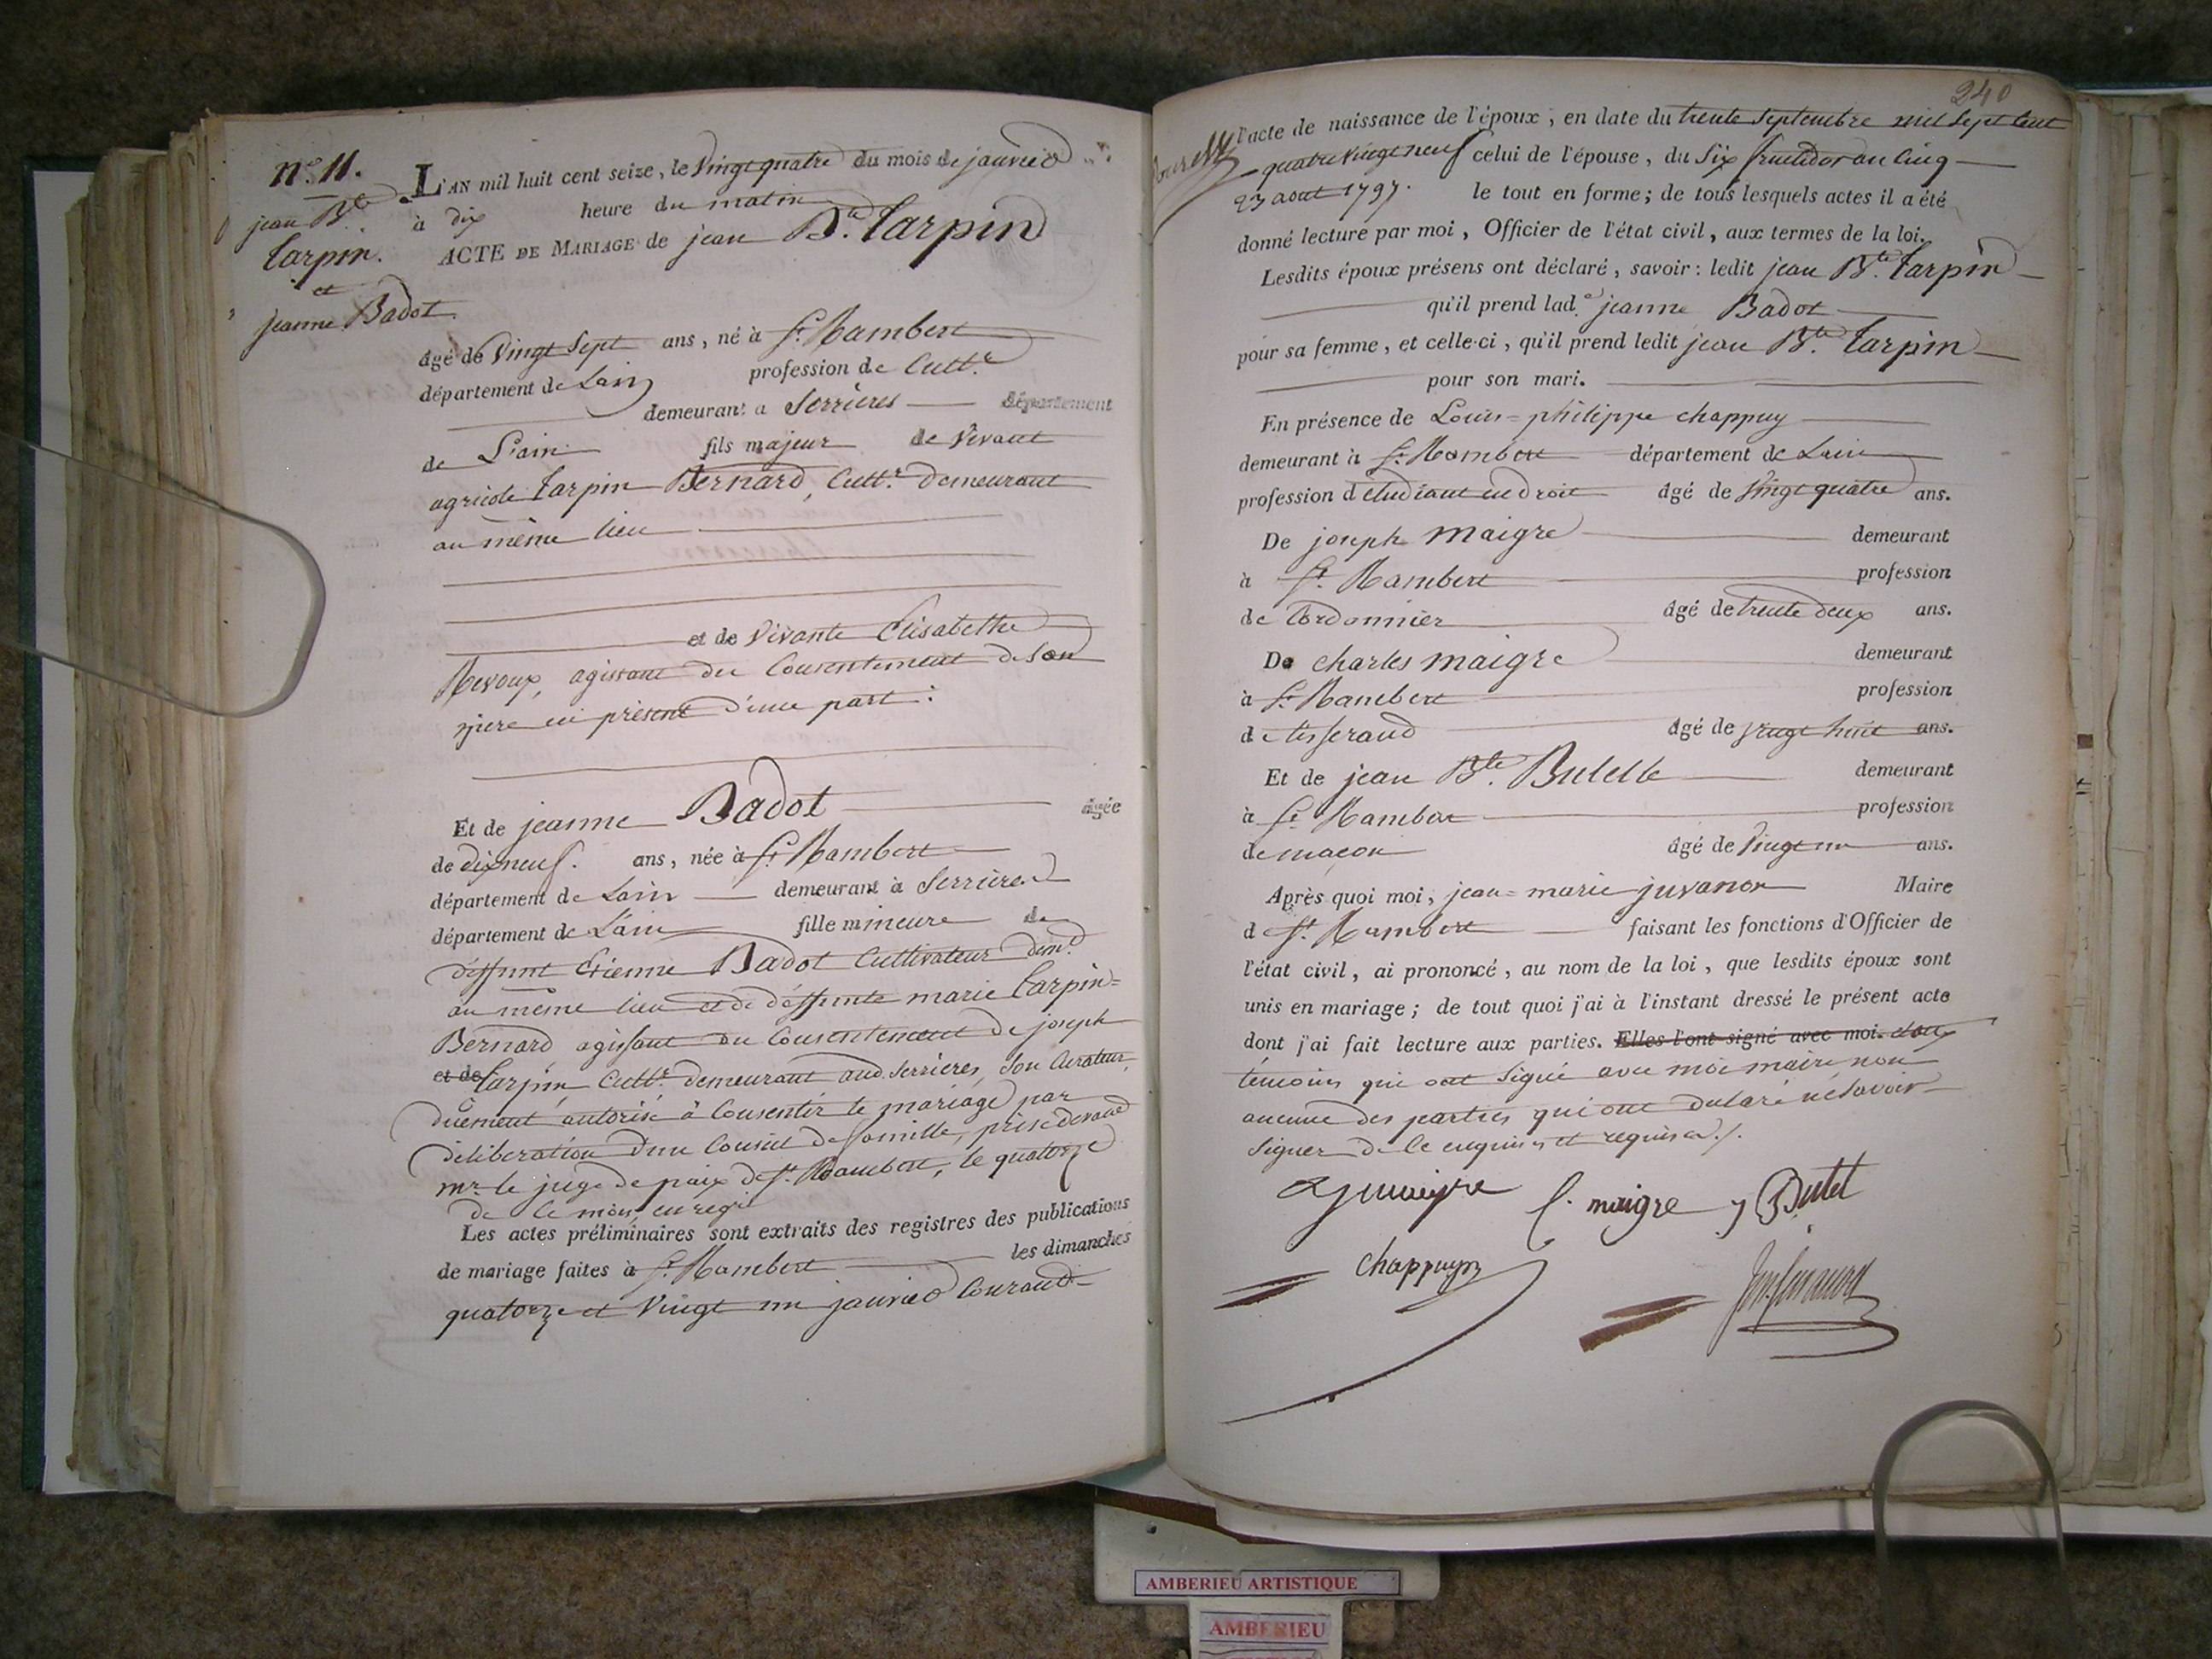 n.° 11.
jean Bte
Tarpin.
et
jeanne Badot.
L'AN mil huit cent seize, le Vingt quatre du mois de janvier
à dix heure du matin
ACTE DE MARIAGE de jean Bte. Tarpin
âgé de Vingt Sept ans, né à St. Rambert
département de Lain profession de Cultr.
demeurant a Serrières département
de L'ain fils majeur de Vivant
agricole Tarpin Bernard, Cultr. Demeurant
au même lieu
et de Vivante Elisabethe
Revoux, agissant du Consentement de son
père ici présent d'une part.
Et de jeanne Badot âgée
de dixneuf. ans, née à St. Rambert
département de Lain demeurant à Serrières
département de L'ain fille mineure de
déffunt Etienne Badot Cultivateur demt.
au même lieu et de déffunte marie Tarpin=
Bernard agissant du Consentement de joseph
et de Tarpin Cultr. demeurant aud. Serrières, Son Curateur,
duement autorisé à Consentir le mariage par
délibération d'un Conseil de famille, prise devant
mr. le juge de paix de St. Rambert, le quatorze
de ce mois, enregié
Les actes préliminaires sont extraits des registres des publications
de mariage faites à St. Rambert les dimanches
quatorze et Vingt un janvier Courant
240
l'acte de naissance de l'époux, en date du trente Septembre mil Sept cent
quatrevingt neuf celui de l'épouse, du Six fructidor an Cinq
23 aout 1797. le tout en forme; de tous lesquels actes il a été
donné lecture par moi, Officier de l'état civil, aux termes de la loi.
Lesdits époux présens ont déclaré, savoir: ledit jean Bte. Tarpin
qu'il prend lad.e jeanne Badot
pour sa femme, et celle-ci, qu'il prend ledit jean Bte. Tarpin
pour son mari.
En présence de Louis=philippe chappuy
demeurant à St. Rambert département de Lain
profession d'étudiant en droit âgé de Vingt quatre ans.
De joseph maigre demeurant
à St. Rambert profession
de Cordonnier âgé de trente deux ans.
De charles maigre demeurant
à St. Rambert profession
de tisserand âgé de vingt huit ans.
Et de jean Bte. Butelle demeurant
à St. Rambert profession
de maçon âgé de Vingt un ans.
Après quoi moi, jean=marie juvanon Maire
d St. Rambert faisant les fonctions d'Officier de
l'état civil, ai prononcé, au nom de la loi, que lesdits époux sont
unis en mariage; de tout quoi j'ai à l'instant dressé le présent acte
dont j'ai fait lecture aux parties. Elles l'ont signé avec moi.
témoins qui ont Signé avec moi maire, non
aucune des parties qui ont déclaré ne Savoir
Signer de Ce enquis et requises ./.
C. maigre J Butet
Chappuy
AMBERIEU ARTISTIQUE
AMBERIEU